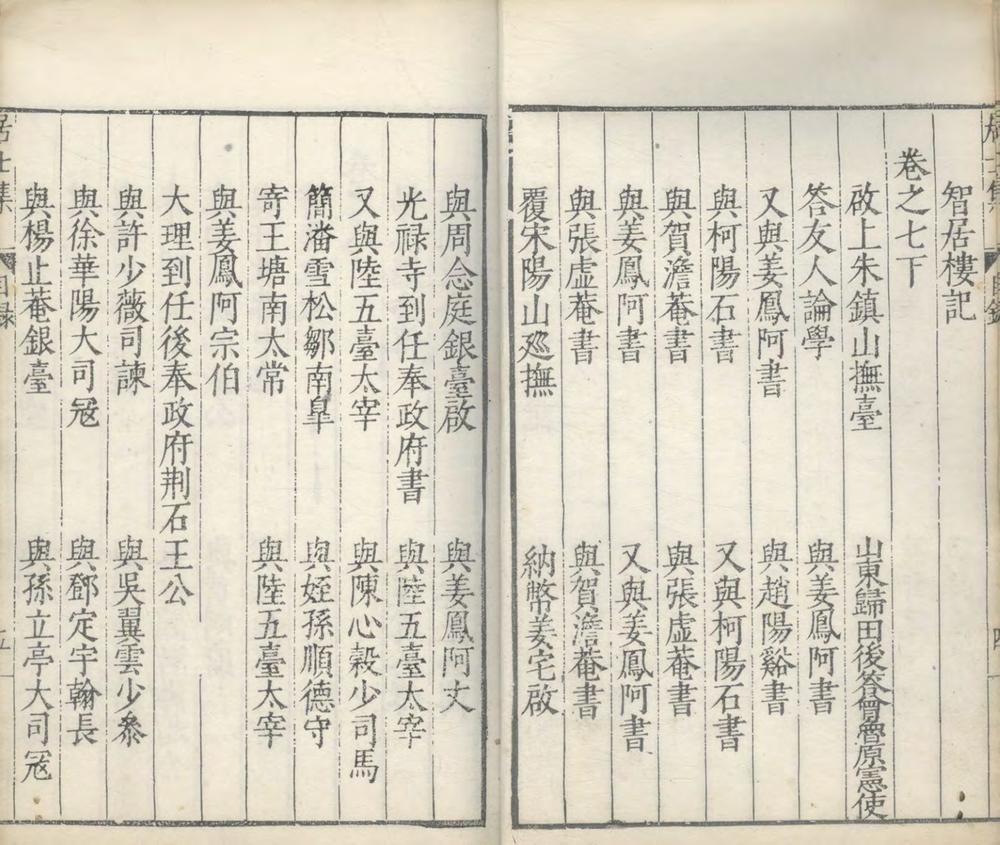 智居樓記
卷之七下
啟上朱鎮山撫臺　山東歸田後答曾魯原憲使
答友人論學　與姜鳳阿書
又與姜鳳阿書　與趙陽谿書
與柯陽石書　又與柯陽石書
與賀澹菴書　與張虛菴書
與姜鳳阿書　又與姜鳳阿書
與張虛菴書　與賀澹菴書
覆宋陽山廵撫　納幣姜宅啟
與周念庭銀臺啟　與姜鳳阿文
光祿寺到任奉政府書　與陸五臺太宰
又與陸五臺太宰　與陳心穀少司馬
簡潘雪松鄒南臯　與姪孫順德守
寄王塘南太常　與陸五臺太宰
與姜鳳阿宗伯
大理到任後奉政府荆石王公
與許少薇司諫　與吳翼雲少叅
與徐華陽大司冦　與鄧定宇翰長
與楊止菴銀臺　與孫立亭大司冦
居士集　目錄　五